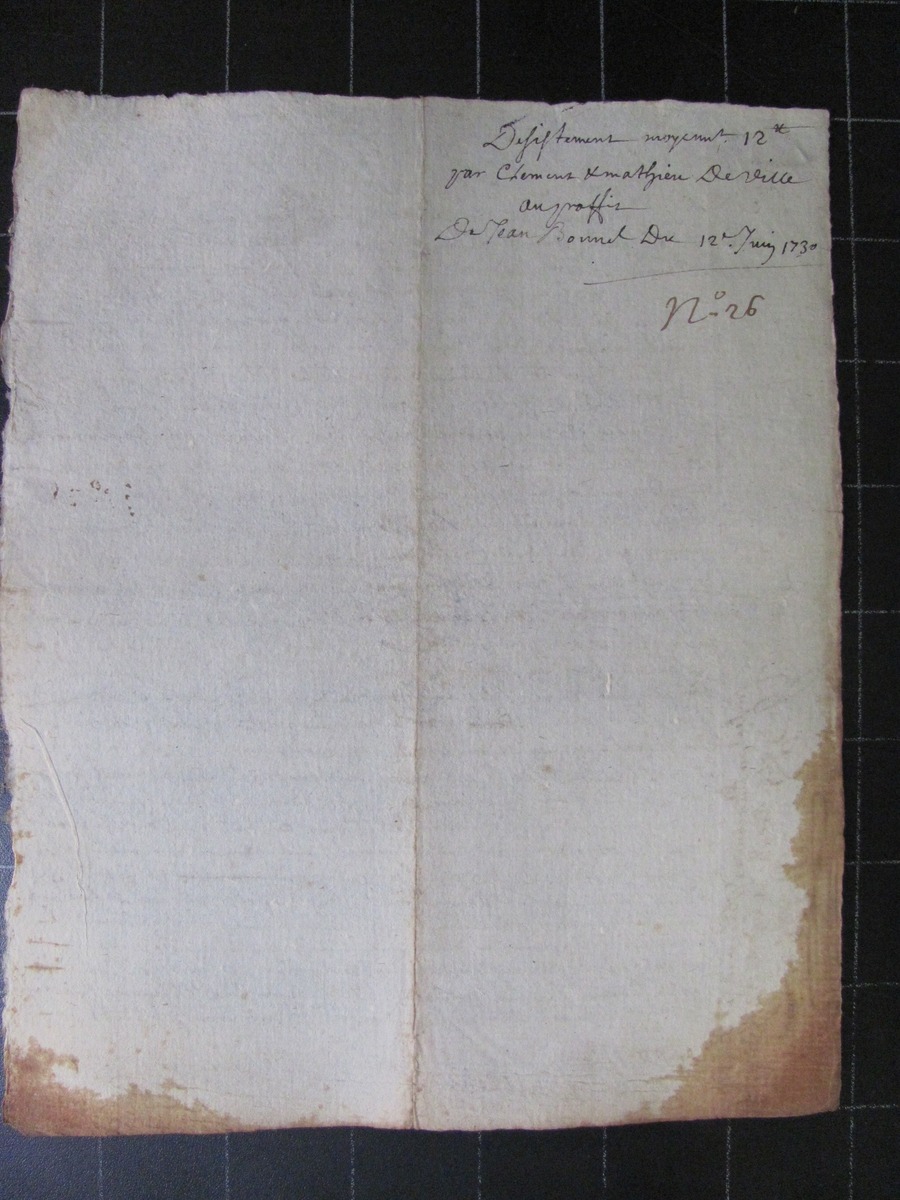 Desistement moyennt. 12 ₶
par Clement & mathieu Deville
au proffit
De Jean Bonnel Du 12e. Juin 1730
No. 26